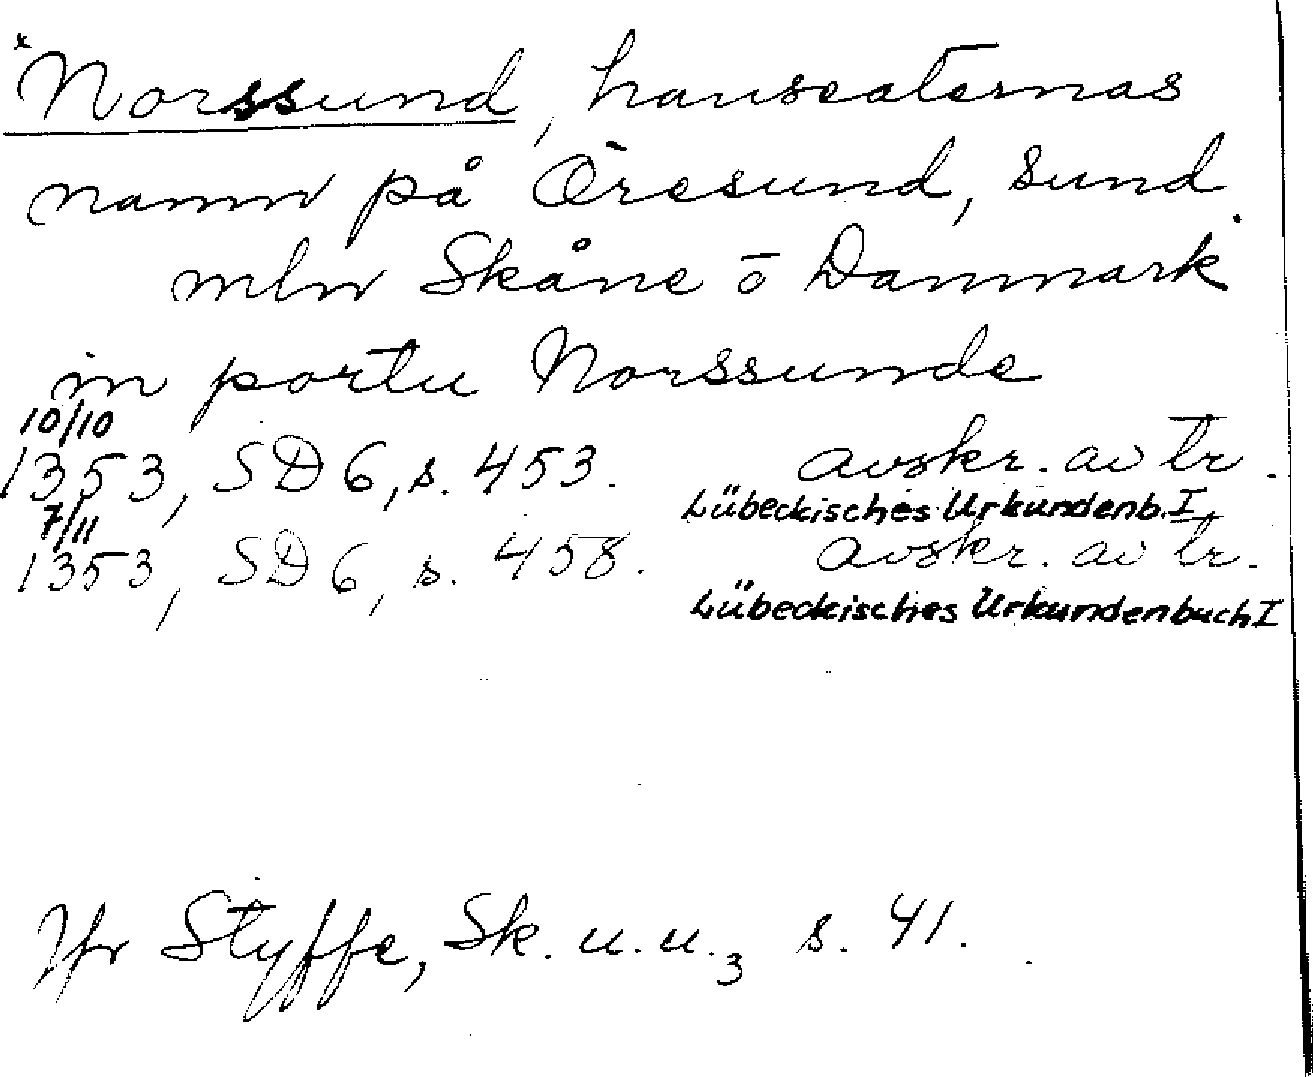 *Norssund, hanseaternas
namn på Öresund, sund
mln Skåne o Danmark
in portu Norssunde
10/10
1353, SD 6, s. 453. avskr. av tr.
Lübeckisches Urkundenb. I
7/11
1353, SD 6, s. 458. avskr. av tr.
Lübeckisches Urkundenbuch I
Jfr Styffe, Sk. u. u.3 s. 41.